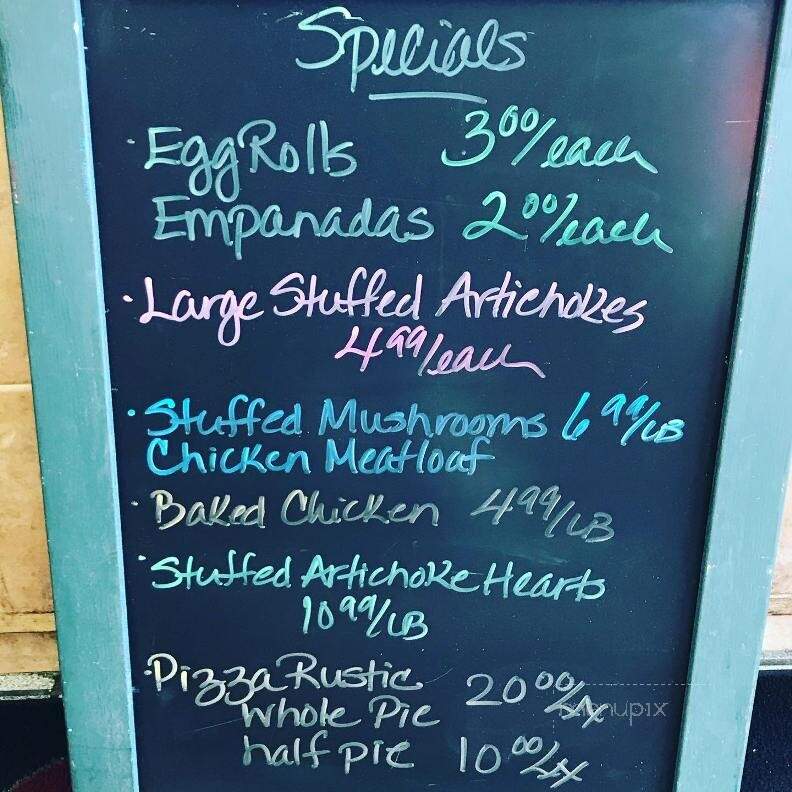 Specials
· Egg Rolls 3.00/each
Empanadas 2.00/each
· Large Stuffed Artichokes
4.99/each
· Stuffed Mushrooms 6.99/LB
Chicken Meatloaf
· Baked Chicken 4.99/LB
· Stuffed Artichoke Hearts
10.99/LB
· Pizza Rustic 20.00/
Whole Pie
half pie 10.00/
menupix